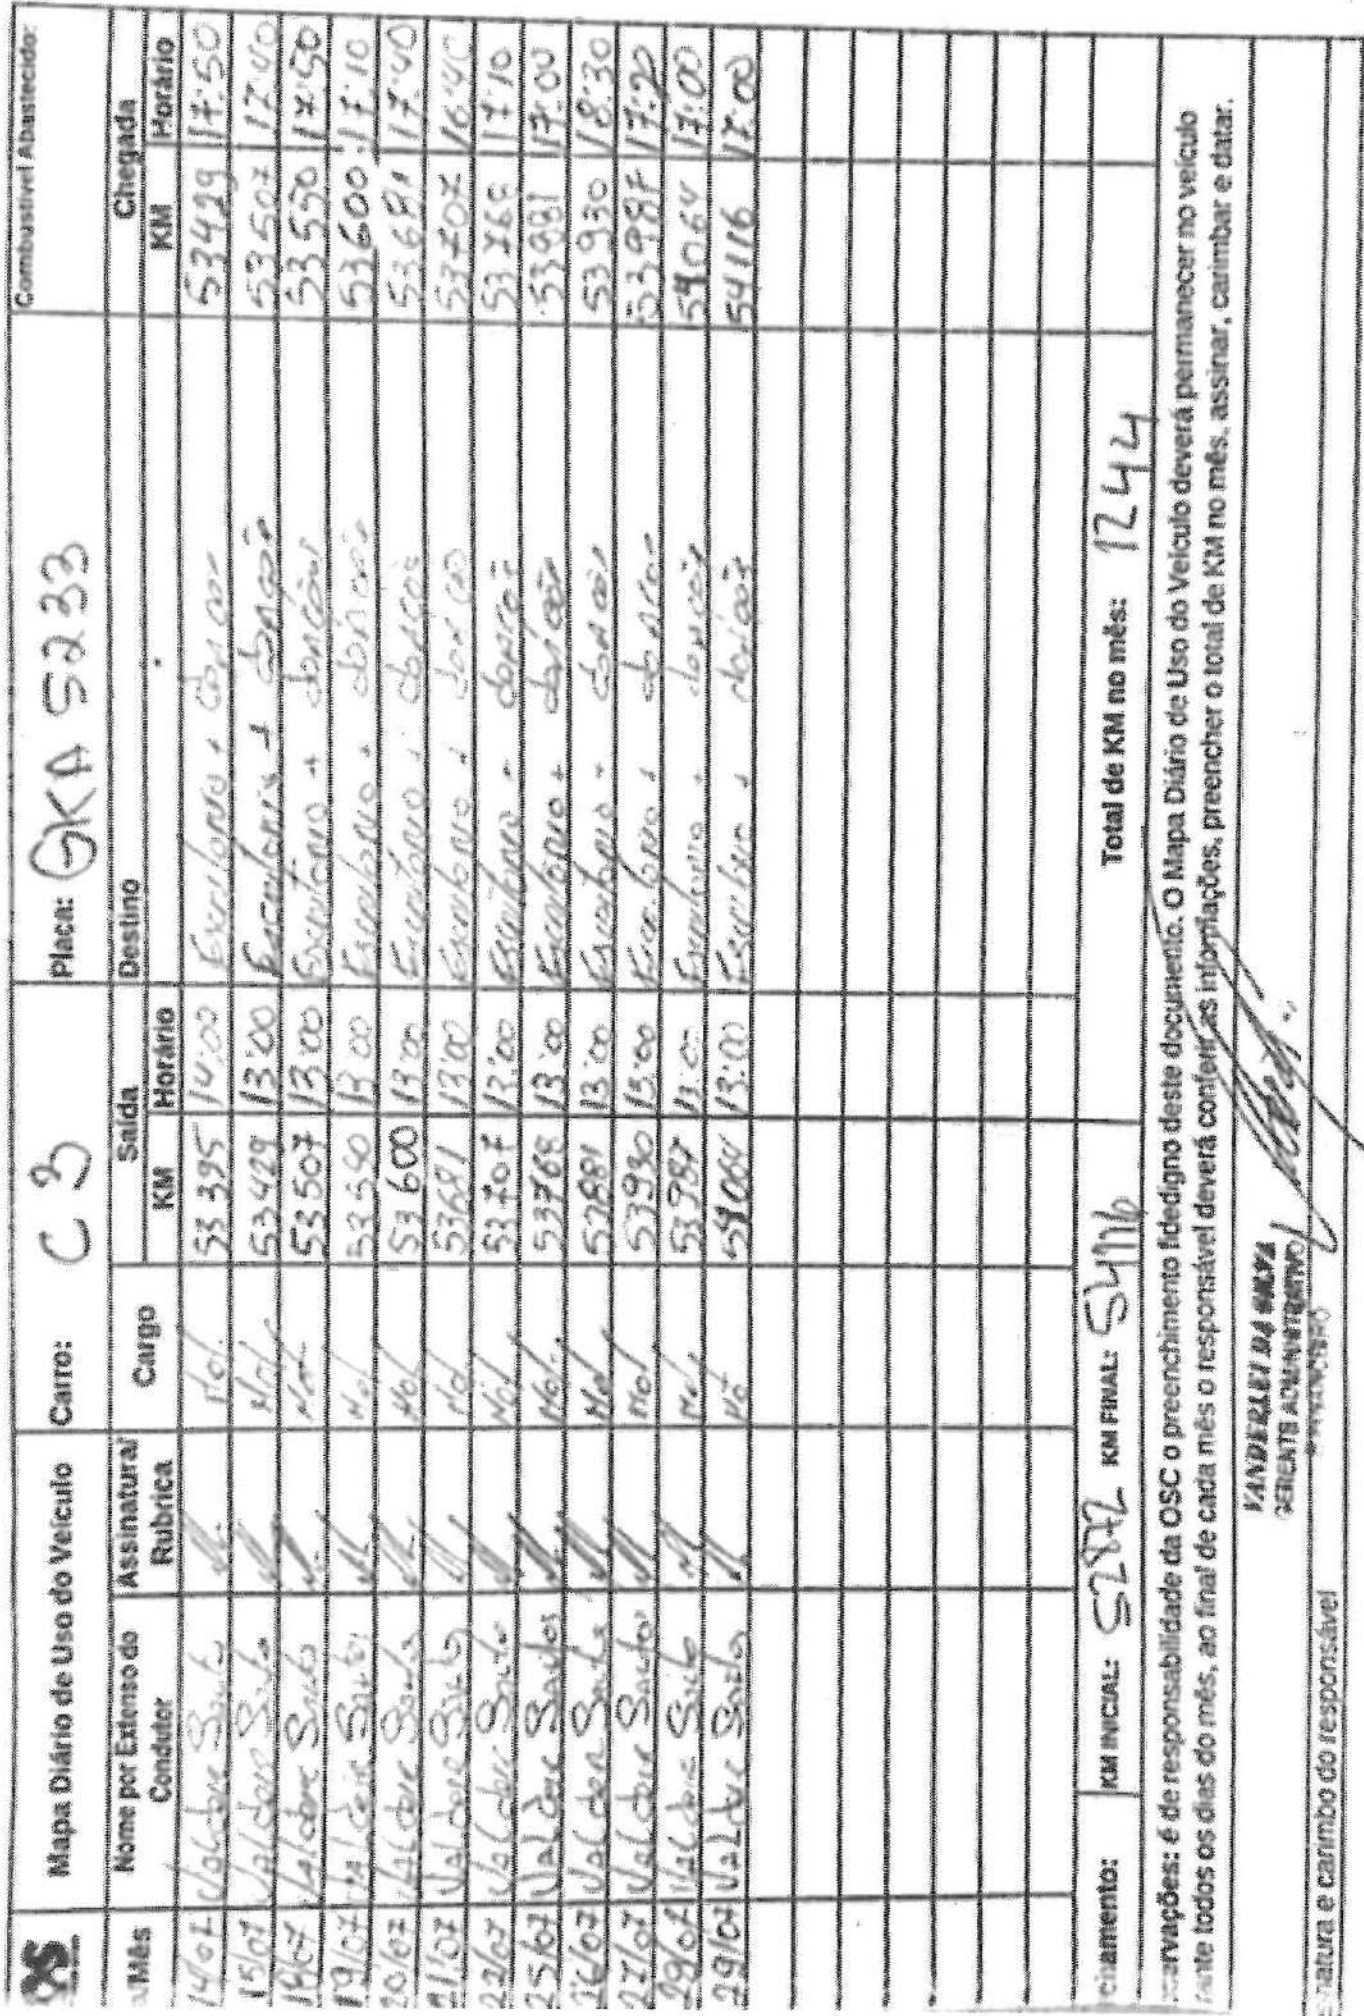 Mapa Diário de Uso do Veículo Carro: C3 Placa: GKA 5233 Combustível Abastecido:
Mês Nome por Extenso do Condutor Assinatura/ Rubrica Cargo Saída Destino Chegada
KM Horário KM Horário
14/07 Valdeir Santos Mot. 53395 14:00 Escritório + doações 53429 17:50
15/07 Valdeir Santos Mot. 53429 13:00 Escritório + doações 53507 17:40
Valdeir Santos Mot. 53507 13:00 Escritório + doações 53550 17:50
19/07 Valdeir Santos Mot 53550 13:00 Escritório + doações 53600 17:10
20/07 Valdeir Santos Mot 53600 13:00 Escritório + doações 53681 17:40
21/07 Valdeir Santos Mot 53681 13:00 Escritório + doações 53707 16:40
22/07 Valdeir Santos Mot 53707 13:00 Escritório + doações 53768 17:10
25/07 Valdeir Santos Mot. 53768 13:00 Escritório + doações 53881 17:00
26/07 Valdeir Santos Mot 53881 13:00 Escritório + doações 53930 18:30
27/07 Valdeir Santos Mot 53930 13:00 Escritório + doações 53987 17:20
Valdeir Santos Mot 53987 13:00 Escritório + doações 54064 17:00
29/07 Valdeir Santos Mot 54064 13:00 Escritório + doações 54116 17:00
ciamento: KM INICIAL: 52872 KM FINAL: 54116 Total de KM no mês: 1244
servações: é de responsabilidade da OSC o preenchimento fidedigno deste documento. O Mapa Diário de Uso do Veículo deverá permanecer no veículo
ante todos os dias do mês, ao final de cada mês o responsável deverá conferir as informações, preencher o total de KM no mês, assinar, carimbar e datar.
VANDERLEI DA SILVA
GERENTE ADMINISTRATIVO
FINANCEIRO
natura e carimbo do responsável